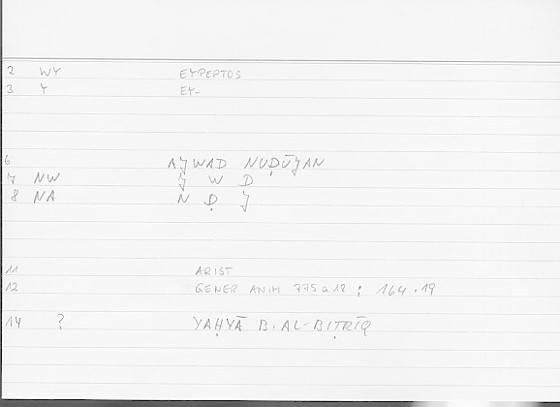 2 WY EYPEPTOS
3 Y EY-
6 AJWAD NUḌŪJAN
7 NW J W D
8 NA N Ḍ J
11 ARIST
12 GENER ANIM 775 a 18 ; 164.19
14 ? YAḤYĀ B. AL-BIṬRĪQ